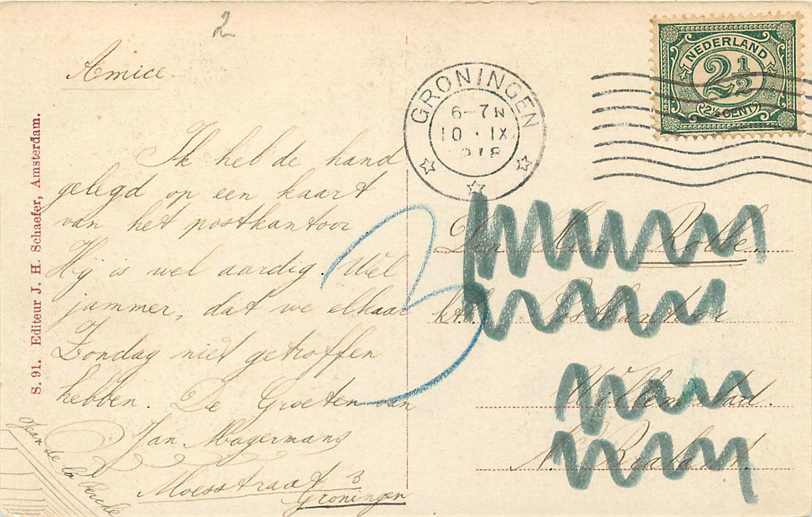 2
Amice
Ik heb de hand
gelegd op een kaart
van het postkantoor
Hij is wel aardig. Wel
jammer, dat we elkaar
Zondag niet getroffen
hebben. De Groeten van
Jan Magermans
Moesstraat 3
Groningen
Jean de la
S. 91. Editeur J. H. Schaefer, Amsterdam.
GRONINGEN
6-7N
10 . IX
NEDERLAND
2½
(2½ CENT)
3
Den Heer
Postkantoor
Willemstad.
N. Brabant.